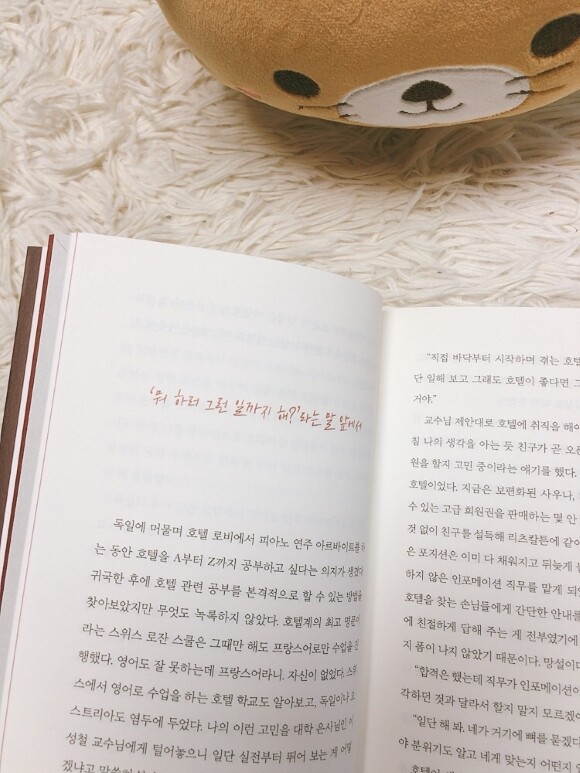 '뭐 하러 그런 일까지 해?'라는 말 앞에서
독일에 머물며 호텔 로비에서 피아노 연주 아르바이트를 하
는 동안 호텔을 A부터 Z까지 공부하고 싶다는 의지가 생겼다
귀국한 후에 호텔 관련 공부를 본격적으로 할 수 있는 방법을
찾아보았지만 무엇도 녹록하지 않았다. 호텔계의 최고 명문이
라는 스위스 로잔 스쿨은 그때만 해도 프랑스어로만 수업을 진
행했다. 영어도 잘 못하는데 프랑스어라니. 자신이 없었다. 스위
스에서 영어로 수업을 하는 호텔 학교도 알아보고, 독일이나 오
스트리아도 염두에 두었다. 나의 이런 고민을 대학 은사님인 이
성철 교수님에게 털어놓으니 일단 실전부터 뛰어 보는 게 어떻
겠냐고
"직접 바닥부터 시작하며 겪는 호텔
단 일해 보고 그래도 호텔이 좋다면 그
거야."
교수님 제안대로 호텔에 취직을 해야
침 나의 생각을 아는 듯 친구가 곧 오픈
원을 할지 고민 중이라는 얘기를 했다.
호텔이었다. 지금은 보편화된 사우나,
수 있는 고급 회원권을 판매하는 몇 안
것 없이 친구를 설득해 리츠칼튼에 같이
은 포지션은 이미 다 채워지고 뒤늦게
하지 않은 인포메이션 직무를 맡게 되었
호텔을 찾는 손님들에게 간단한 안내를
에 친절하게 답해 주는 게 전부였기에
지 폼이 나지 않았기 때문이다. 망설이다
"합격은 했는데 직무가 인포메이션이
각하던 것과 달라서 할지 말지 모르겠어
"일단 해 봐. 네가 거기에 뼈를 묻겠다
야 분위기도 알고 네게 맞는지 어떤지